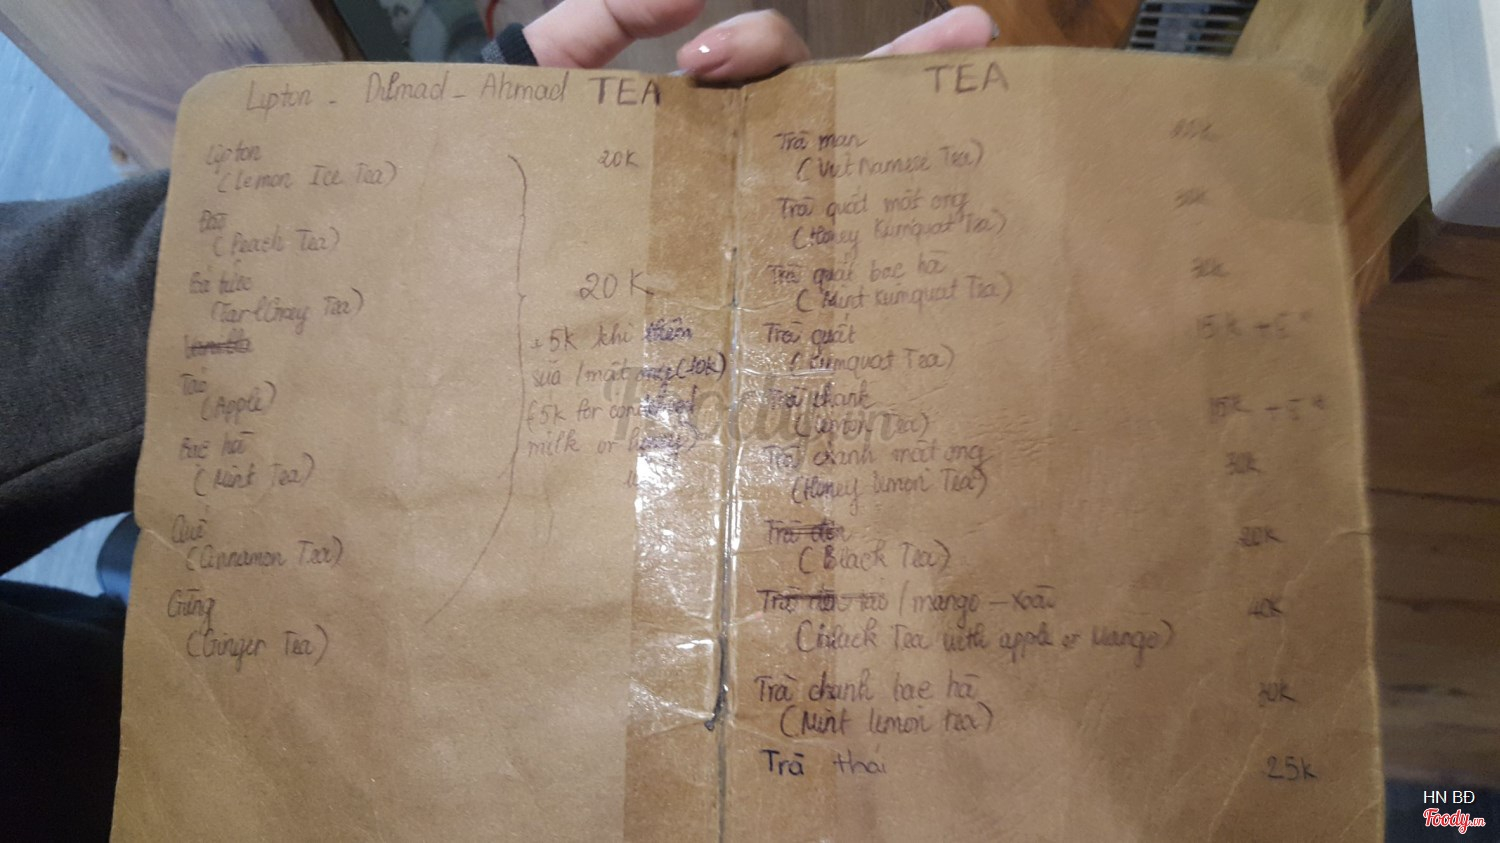 Lipton - Dilmad - Ahmad TEA
Lipton 20K
(Lemon Ice Tea)
Đào
(Peach Tea)
Bá tước
(Earl Grey Tea)
Táo
(Apple)
Bạc hà
(Mint Tea)
Quế
(Cinnamon Tea)
Gừng
(Ginger Tea)
20K
+5K khi thêm
sữa / mật ong (10K)
(5K for condensed
milk or honey)
TEA
Trà mạn
(VietNamese Tea)
Trà quất mật ong
(Honey Kumquat Tea)
Trà quất bạc hà 30K
(Mint Kumquat Tea)
Trà quất 15K
(Kumquat Tea)
Trà chanh 15K
(Lemon Tea)
Trà chanh mật ong 30K
(Honey lemon Tea)
Trà đen 20K
(Black Tea)
Trà đào táo / mango - xoài 40K
(Black Tea with apple or Mango)
Trà chanh bạc hà 30K
(Mint lemon tea)
Trà thái 25K
Foody.vn
HN BĐ
Foody.vn